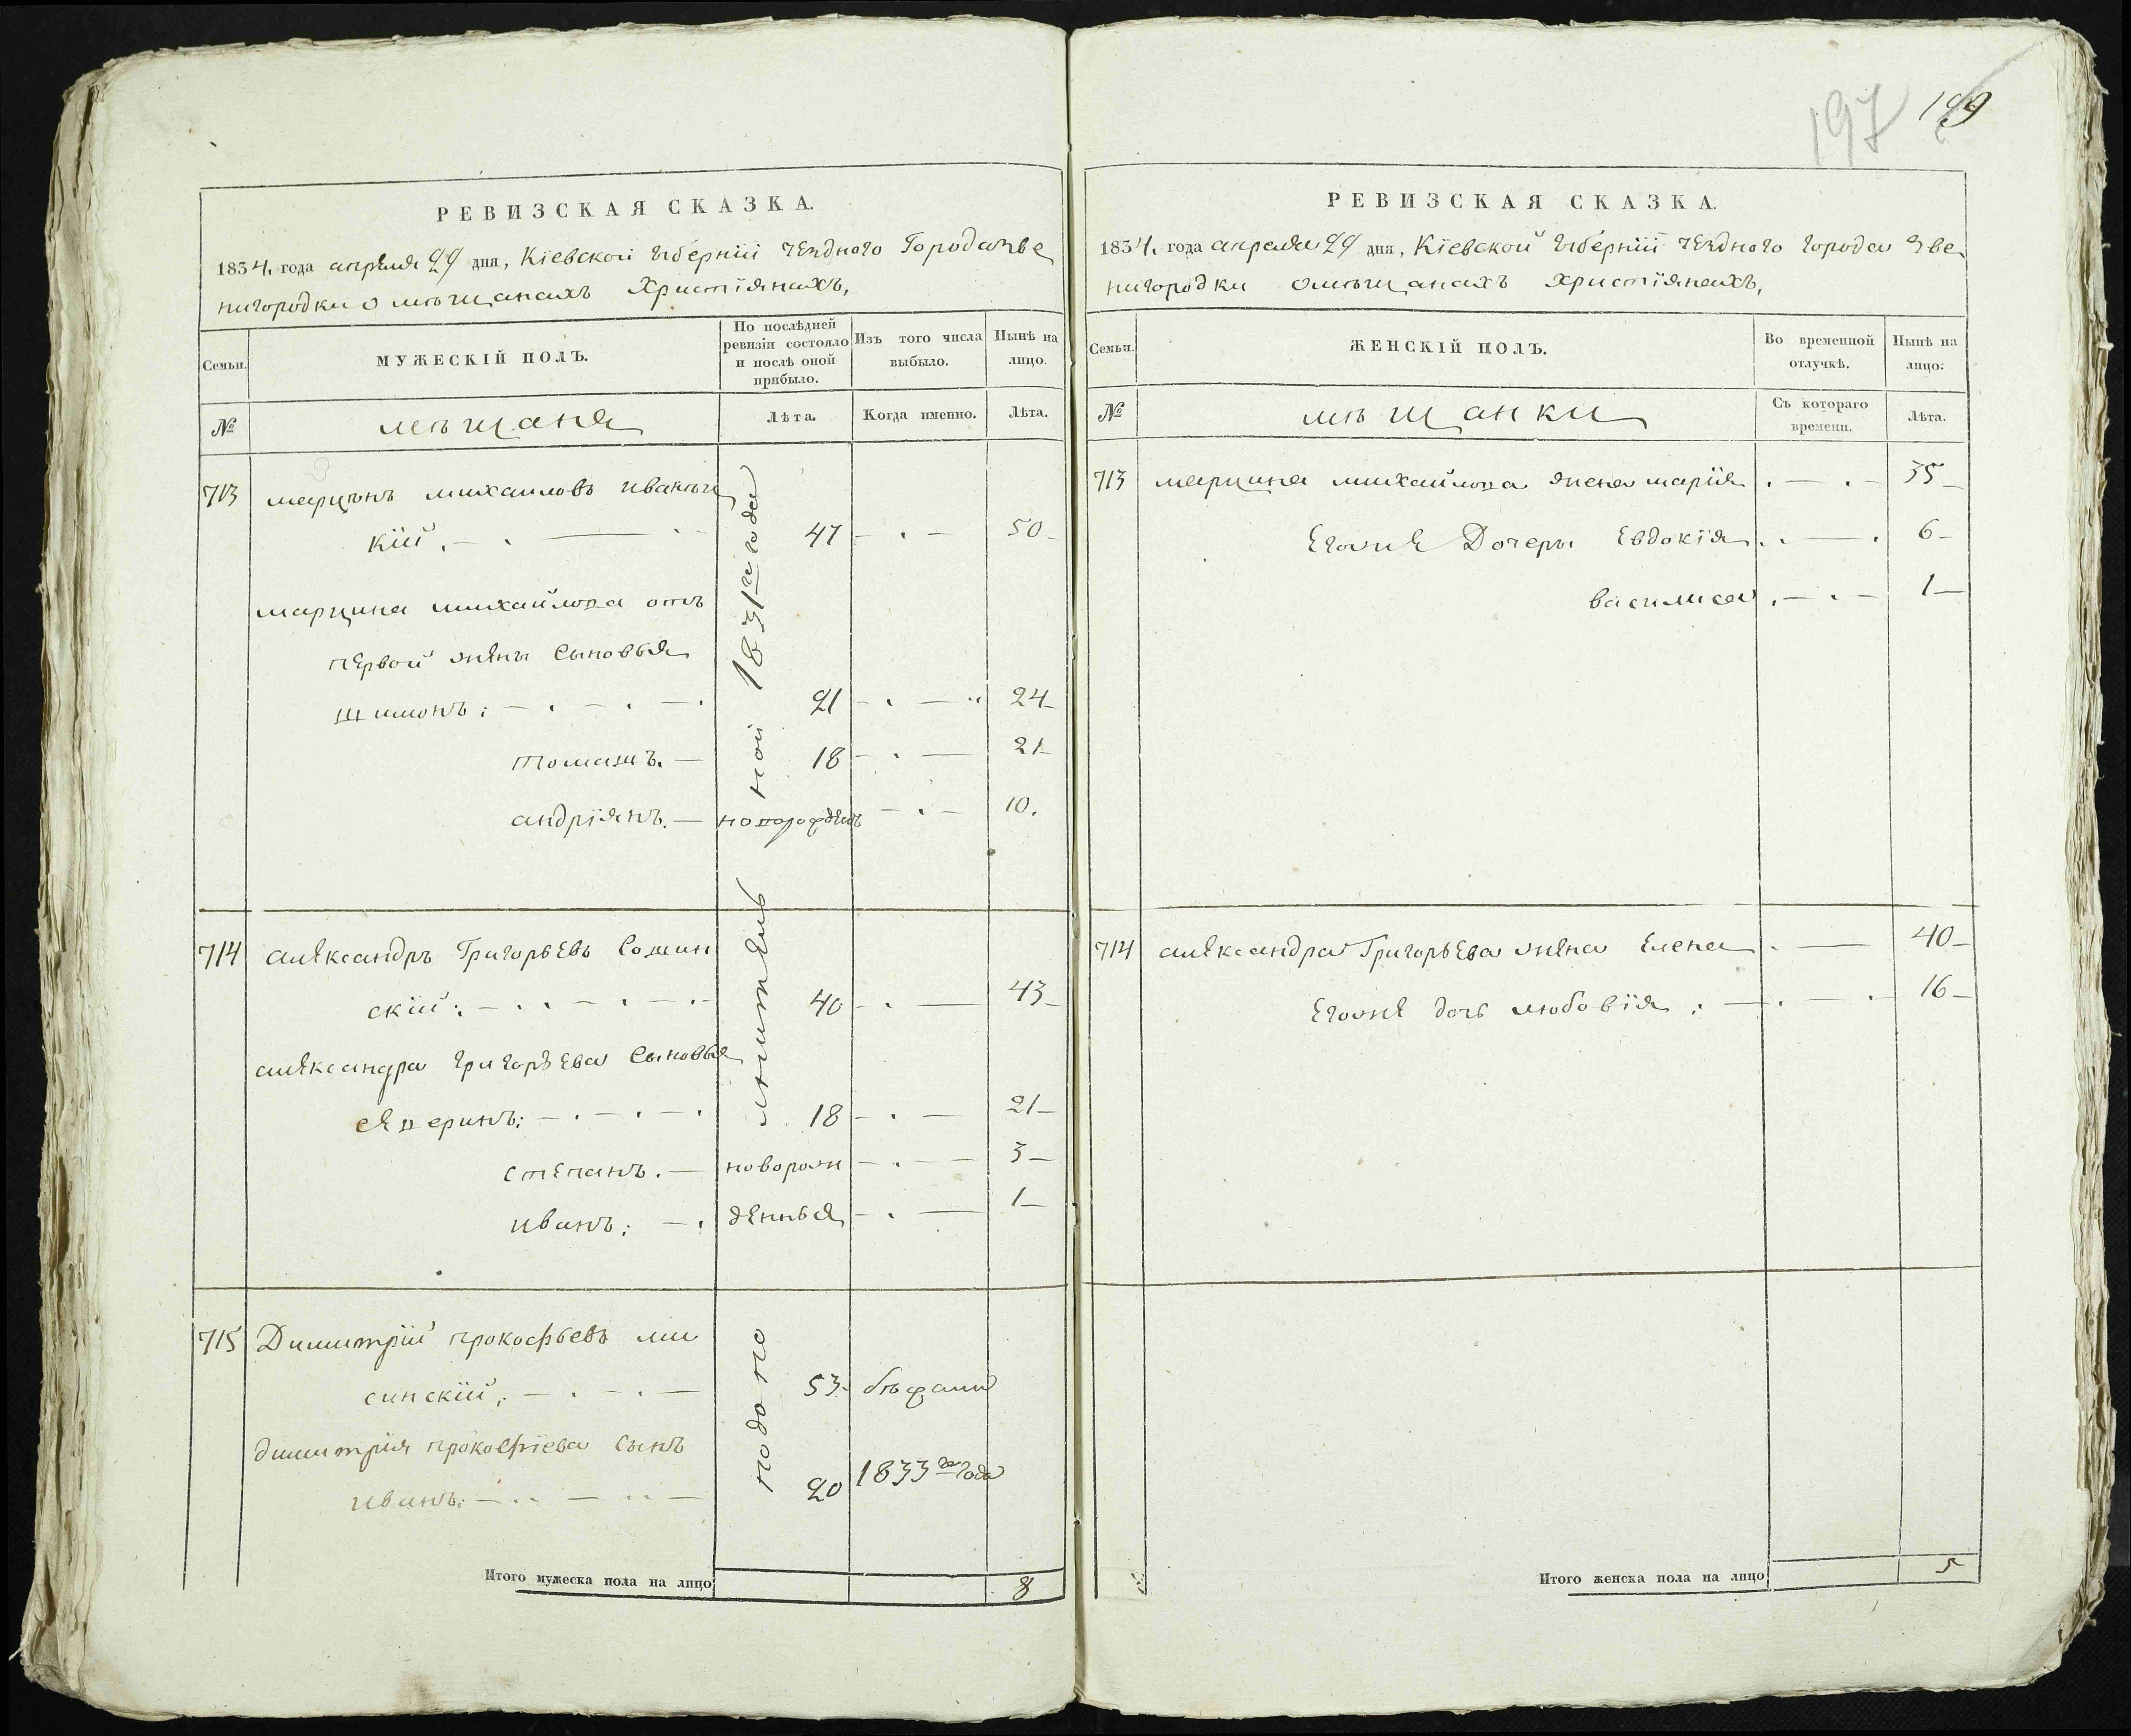 РЕВИЗСКАЯ СКАЗКА.
1834. года апреля 29 дня, Кіевской губерніи уезднаго Города Зве
нигородки о мѣщанахъ Христіянахъ,
Семьи.
МУЖЕСКІЙ ПОЛЪ.
По послѣдней ревизіи состояло и послѣ оной прибыло.
Изъ того числа выбыло.
Нынѣ на лицо.
№
мѣщаня
Лѣта.
Когда именно.
Лѣта.
713 марцинъ михаиловъ
кій 47 50
марцина михайлова отъ
первой жены Сыновья
шимонъ: 21 24
томашъ. 18 21
андріянъ. новорожденъ 10.
714 александръ Григорьевъ Сошин
скій: 40 43
александра григорьева Сыновья
северинъ: 18 21
степанъ. новорож 3
иванъ: денныя 1
715 Димитрій прокофьевъ ми
синскій: 53.
димитрія прокофіева сынъ
иванъ: 20 1833го года
1831го года
Итого мужеска пола на лицо 8
197 199
РЕВИЗСКАЯ СКАЗКА.
1834. года апреля 29 дня, Кіевской губерніи уезднаго города Зве
нигородки о мѣщанахъ Христіянахъ,
Семьи.
ЖЕНСКІЙ ПОЛЪ.
Во временной отлучкѣ.
Нынѣ на лицо.
№
мѣщанки
Съ котораго времени.
Лѣта.
713 марцина михайлова жена марія 35
Егоже Дочеры Евдокія 6
василиса 1
714 александра Григорьева жена Елена 40
Егоже дочь любовія 16
Итого женска пола на лицо 5